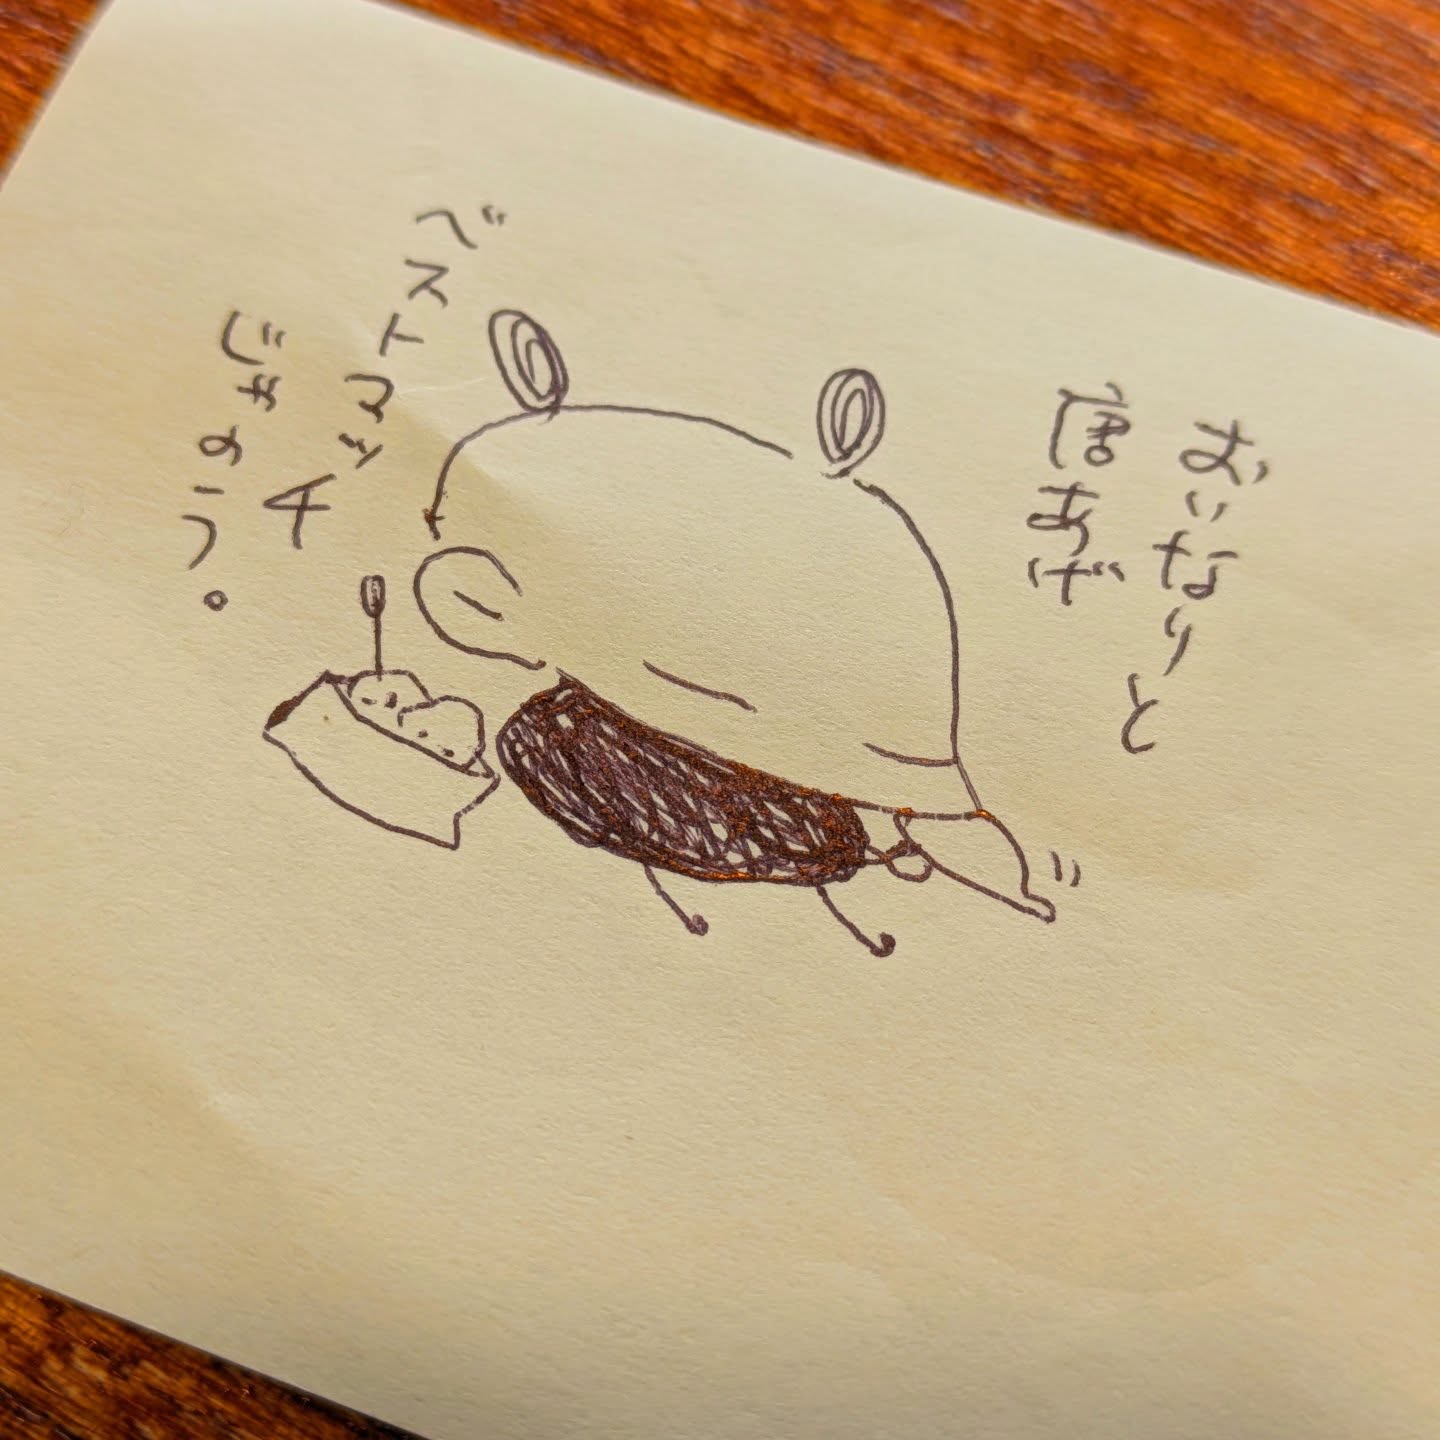 おいなりと
唐あげ
ベストマッチ
じゃのう。